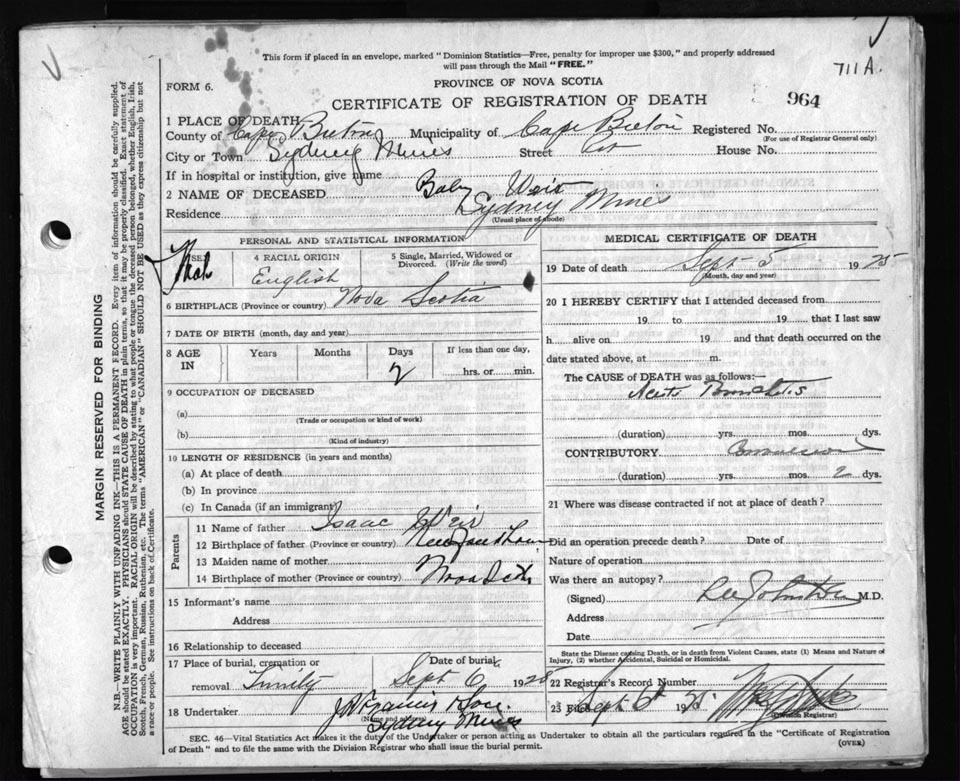 This form if placed in an envelope, marked "Dominion Statistics—Free, penalty for improper use $300," and properly addressed
will pass through the Mail "FREE."
711A.
FORM 6.
PROVINCE OF NOVA SCOTIA
CERTIFICATE OF REGISTRATION OF DEATH
964
1 PLACE OF DEATH
County of Cape Breton Municipality of Cape Breton Registered No.
(For use of Registrar General only)
City or Town Sydney Mines Street House No.
If in hospital or institution, give name
2 NAME OF DECEASED Baby Weir
Residence Sydney Mines
(Usual place of abode)
PERSONAL AND STATISTICAL INFORMATION
3 SEX Male
4 RACIAL ORIGIN English
5 Single, Married, Widowed or Divorced. (Write the word)
6 BIRTHPLACE (Province or country) Nova Scotia
7 DATE OF BIRTH (month, day and year)
8 AGE IN Years Months Days 2 If less than one day, hrs. or min.
9 OCCUPATION OF DECEASED
(a)
(Trade or occupation or kind of work)
(b)
(Kind of industry)
10 LENGTH OF RESIDENCE (in years and months)
(a) At place of death
(b) In province
(c) In Canada (if an immigrant)
Parents
11 Name of father Isaac Weir
12 Birthplace of father (Province or country) Newfoundland
13 Maiden name of mother
14 Birthplace of mother (Province or country) Nova Scotia
15 Informant's name
Address
16 Relationship to deceased
17 Place of burial, cremation or Date of burial
removal Trinity Sept 6 1925
18 Undertaker J A Francis & Son
(Name and address)
Sydney Mines
MEDICAL CERTIFICATE OF DEATH
19 Date of death Sept 5 1925
(Month, day and year)
20 I HEREBY CERTIFY that I attended deceased from
19 to 19 that I last saw
h alive on 19 and that death occurred on the
date stated above, at m.
The CAUSE of DEATH was as follows:—
Acute Bronchitis
(duration) yrs. mos. dys.
CONTRIBUTORY Convulsions
(duration) yrs. mos. 2 dys.
21 Where was disease contracted if not at place of death?
Did an operation precede death? Date of
Nature of operation
Was there an autopsy?
(Signed) Johnston M.D.
Address
Date
State the Disease causing Death, or in death from Violent Causes, state (1) Means and Nature of
Injury, (2) whether Accidental, Suicidal or Homicidal.
22 Registrar's Record Number
23 Filed Sept 6th 19
(Division Registrar)
SEC. 46—Vital Statistics Act makes it the duty of the Undertaker or person acting as Undertaker to obtain all the particulars required in the "Certificate of Registration
of Death" and to file the same with the Division Registrar who shall issue the burial permit.
(OVER)
MARGIN RESERVED FOR BINDING
N.B.—WRITE PLAINLY WITH UNFADING INK—THIS IS A PERMANENT RECORD. Every item of information should be carefully supplied.
AGE should be stated EXACTLY. PHYSICIANS should STATE CAUSE OF DEATH in plain terms, so that it may be properly classified. Exact statement of
OCCUPATION is very important. RACIAL ORIGIN will be described by stating to what people or tongue the deceased person belonged, whether English, Irish,
Scotch, French, German, Russian, Ruthenian, etc. The terms "AMERICAN" or "CANADIAN" SHOULD NOT BE USED as they express citizenship but not
a race or people. See instructions on back of Certificate.